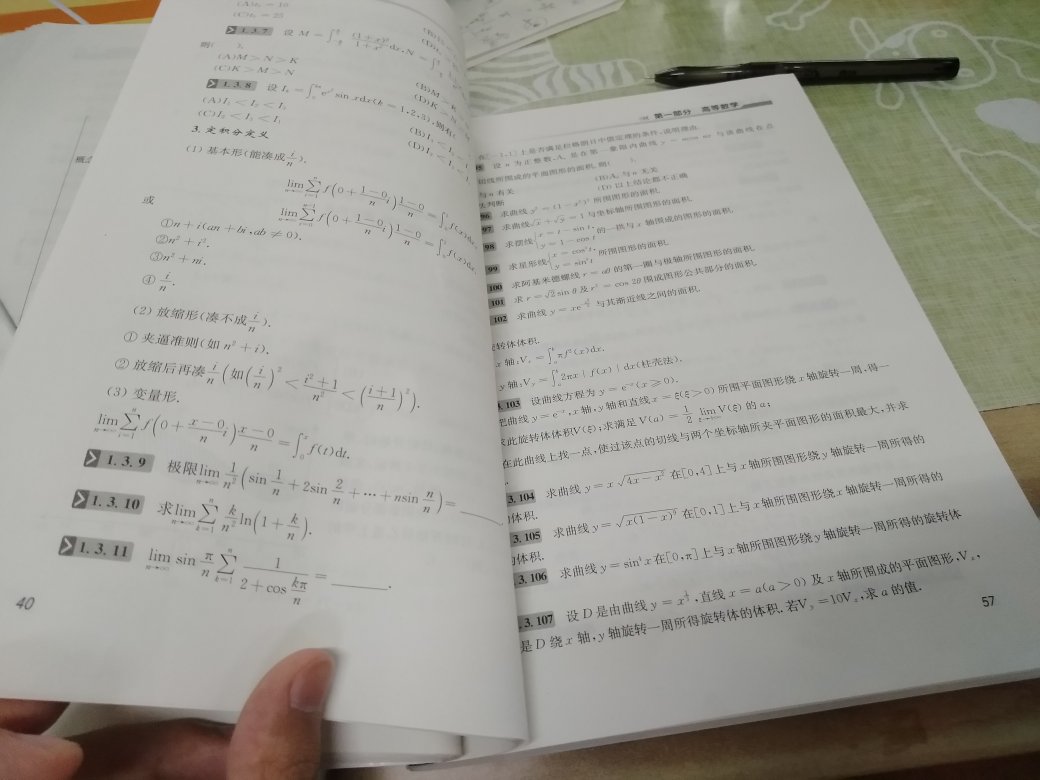 (C)t₀ = 25
1.3.7 设 M =
则( ).
(A)M > N > K
(B)M
(C)K > M > N
(D)K
1.3.8 设 Iₖ = ∫ sin xdx(k = 1,2,3),则有(
(A)I₁ < I₂ < I₃
(B)I₃ <
(C)I₂ < I₃ < I₁
(D)I₂ <
3. 定积分定义
(1) 基本形(能凑成 i/n).
lim_{n→∞} ∑_{i=1}^{n} f(0 + (1−0)/n i) (1−0)/n = ∫ f(x)dx.
或
lim_{n→∞} ∑_{i=0}^{n−1} f(0 + (1−0)/n i) (1−0)/n = ∫ f(x)dx.
①n + i(an + bi,ab ≠ 0).
②n² + i².
③n² + ni.
④ i/n.
(2) 放缩形(凑不成 i/n).
① 夹逼准则(如 n² + i).
② 放缩后再凑 i/n (如 (i/n)² < (i²+1)/n² < ((i+1)/n)²).
(3) 变量形.
lim_{n→∞} ∑_{i=1}^{n} f(0 + (x−0)/n i) (x−0)/n = ∫₀ˣ f(t)dt.
1.3.9 极限 lim_{n→∞} 1/n² (sin 1/n + 2sin 2/n + ⋯ + nsin n/n) = ____.
1.3.10 求 lim_{n→∞} ∑_{k=1}^{n} k/n² ln(1 + k/n).
1.3.11 lim_{n→∞} sin π/n ∑_{k=1}^{n} 1/(2 + cos kπ/n) = ____.
40
第一部分 高等数学
1]上是否满足拉格朗日中值定理的条件,说明理由.
设 n 为正整数,Aₙ 是在第一象限内曲线 与该曲线在点
切线所围成的平面图形的面积,则( ).
与 n 有关
(B)Aₙ 与 n 无关
法判断
(D) 以上结论都不正确
96 求曲线 y² = (1 − x²)³ 所围图形的面积.
97 求曲线 √x + √y = 1 与坐标轴所围图形的面积.
98 求摆线 {x = t − sin t, y = 1 − cos t 的一拱与 x 轴围成的图形的面积.
99 求星形线 {x = cos³t, y = sin³t 所围图形的面积.
100 求阿基米德螺线 r = aθ 的第一圈与极轴所围图形的面积.
101 求 r = √2 sin θ 及 r² = cos 2θ 围成图形公共部分的面积.
102 求曲线 与其渐近线之间的面积.
转体体积.
x 轴:Vₓ = ∫ₐᵇ πf²(x)dx.
y 轴:V_y = ∫ₐᵇ 2πx | f(x) | dx(柱壳法).
103 设曲线方程为 y = e⁻ˣ(x ≥ 0).
把曲线 y = e⁻ˣ,x 轴,y 轴和直线 x = ξ(ξ > 0) 所围平面图形绕 x 轴旋转一周,得一
求此旋转体体积V(ξ);求满足 V(a) = 1/2 lim V(ξ) 的 a;
在此曲线上找一点,使过该点的切线与两个坐标轴所夹平面图形的面积最大,并求
3.104 求曲线 y = x √(4x − x²) 在[0,4]上与 x 轴所围图形绕 y 轴旋转一周所得的
体积.
3.105 求曲线 在[0,1]上与 x 轴所围图形绕 x 轴旋转一周所得的
体积.
3.106 求曲线 y = sin⁴x 在[0,π]上与 x 轴所围图形绕 y 轴旋转一周所得的旋转体
.3.107 设 D 是由曲线 y = x^{1/3},直线 x = a(a > 0) 及 x 轴所围成的平面图形,Vₓ,
是 D 绕 x 轴,y 轴旋转一周所得旋转体的体积. 若V_y = 10Vₓ,求 a 的值.
57